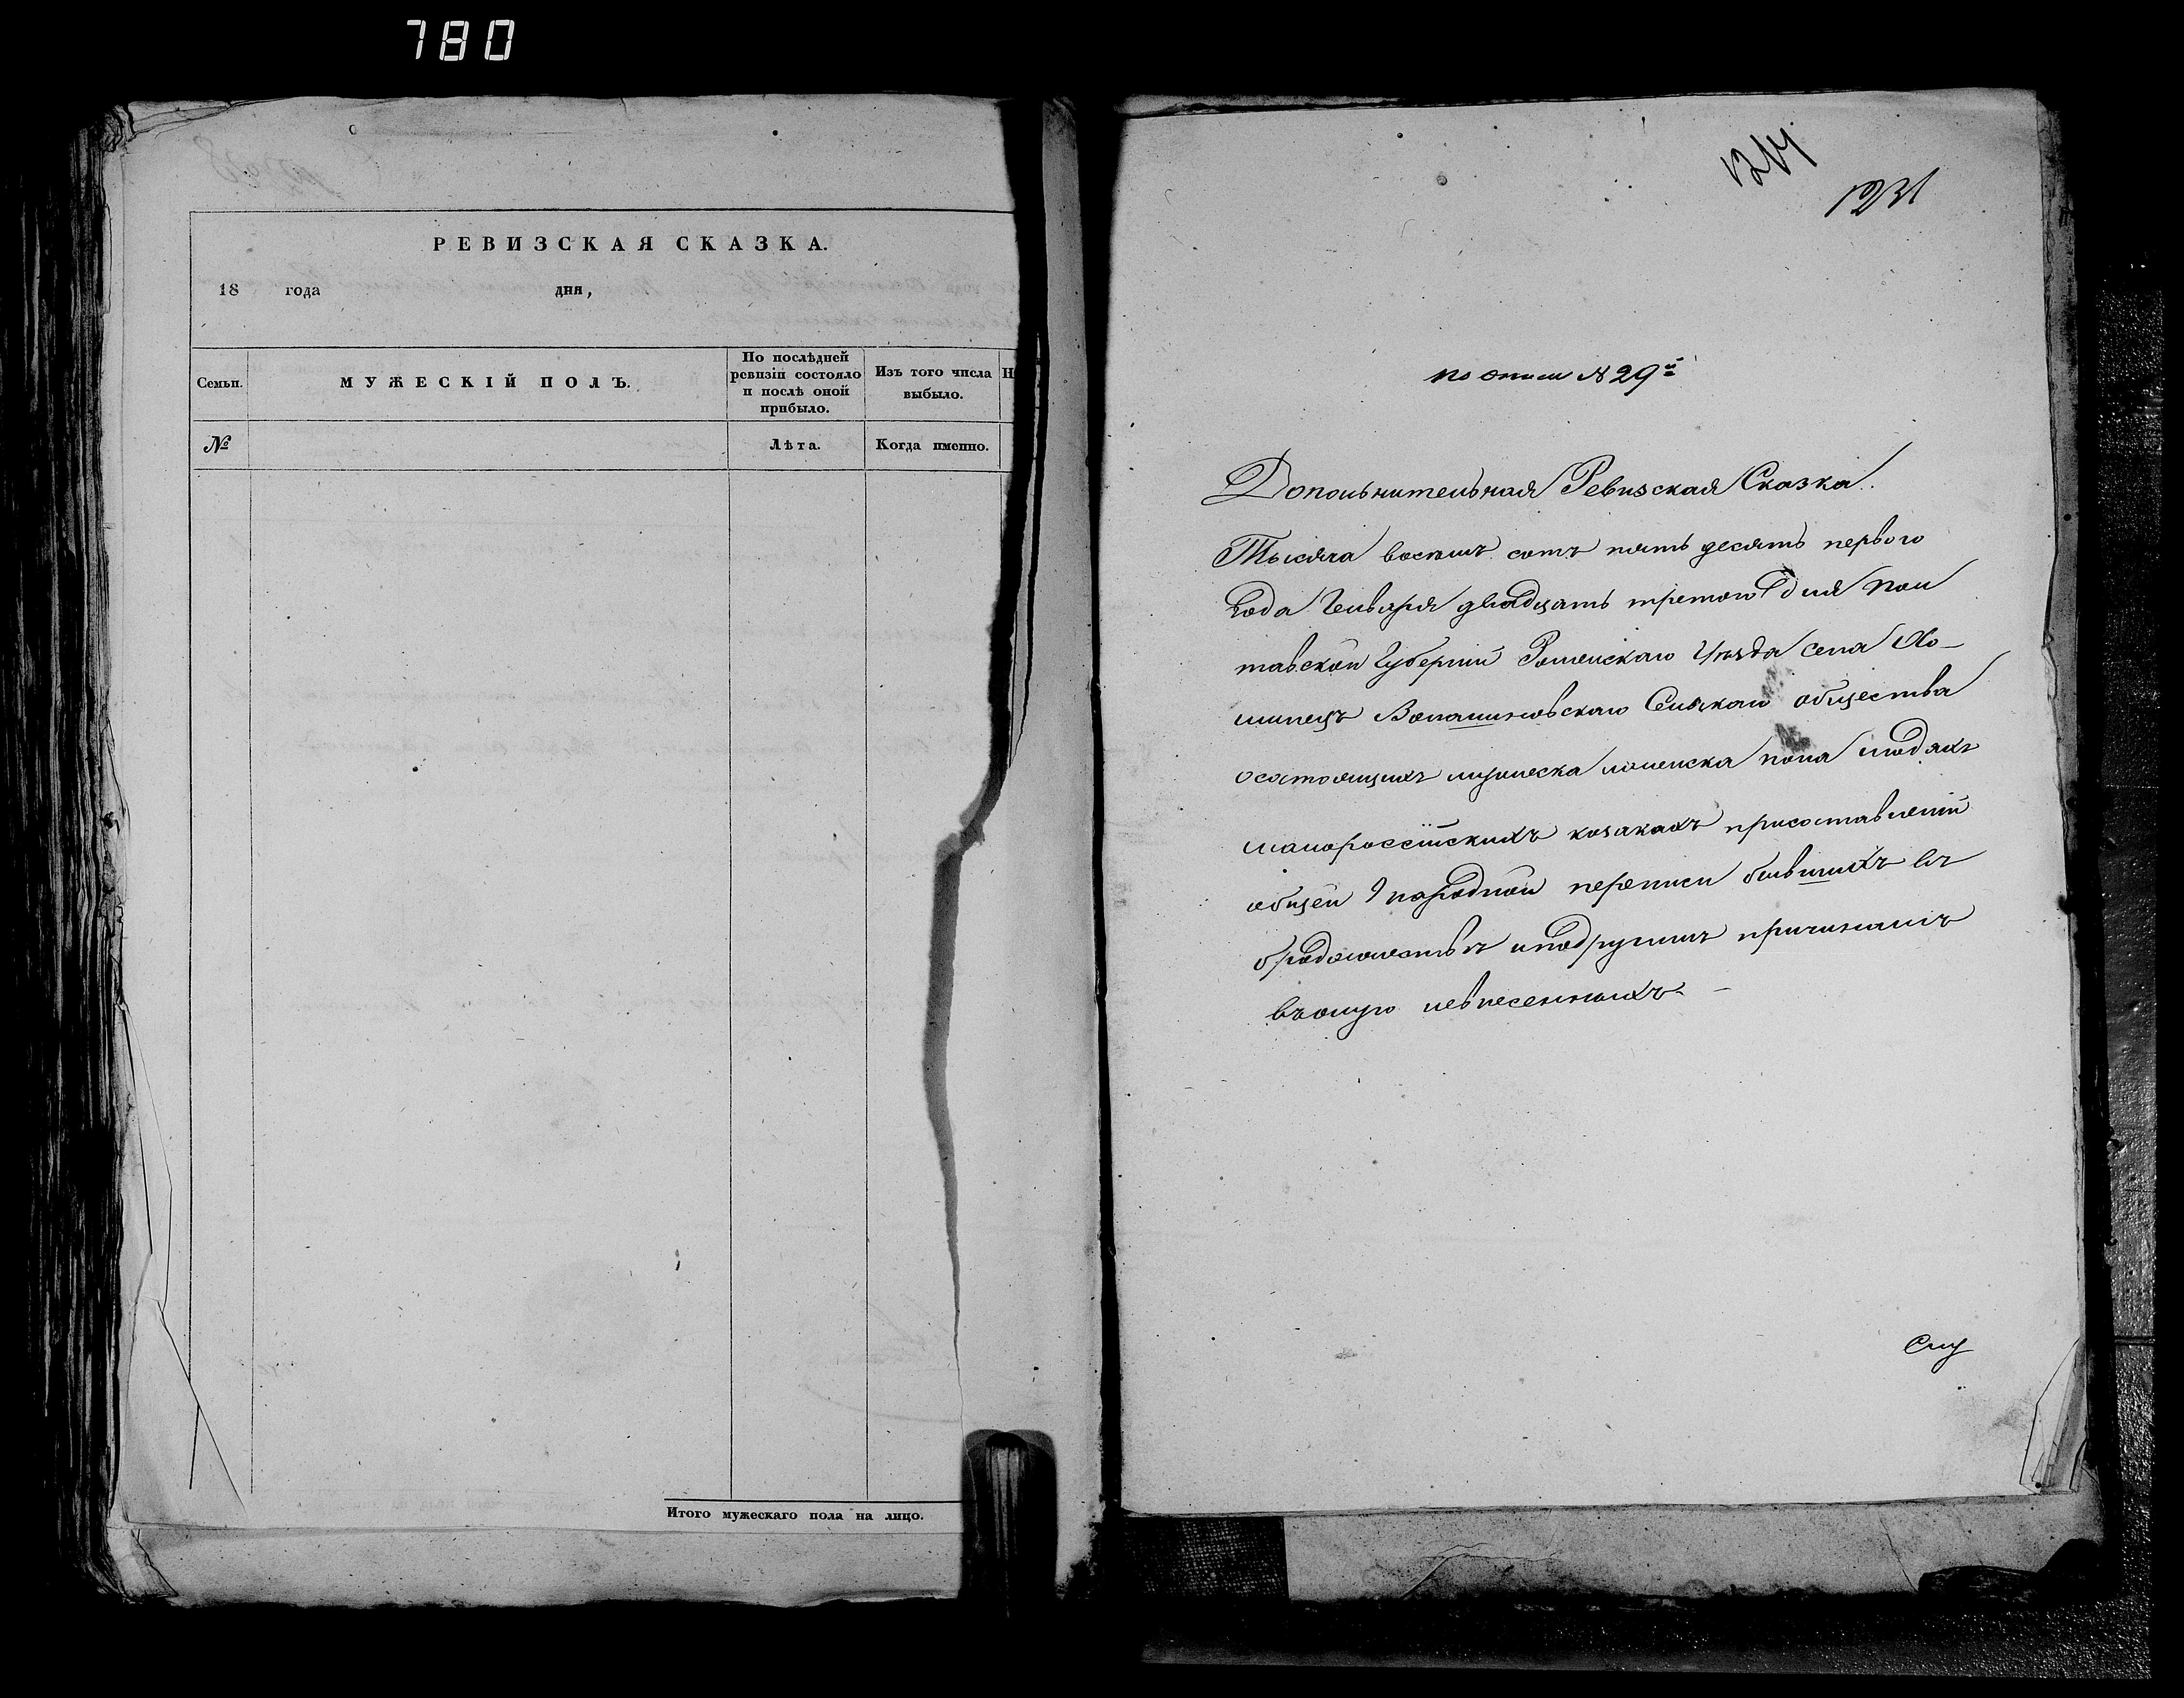 780
РЕВИЗСКАЯ СКАЗКА.
18 года дня,
Семьи.
МУЖЕСКІЙ ПОЛЪ.
По послѣдней
ревизіи состояло
и послѣ оной
прибыло.
Изъ того числа
выбыло.
Н
№
Лѣта.
Когда именно.
Итого мужескаго пола на лицо.
1214
1231
по описи №29й
Дополнительная Ревизская Сказка.
Тысяча восемь сотъ пять десятъ первого
Года Генваря двадцать третого дня Пол
тавской Губерніи Роменскаго Уѣзда села Хо-
минецъ Волошиновскаго Сельскаго общества
осостоящихъ мужеска иженска пола людяхъ
малороссійскихъ козакахъ присоставленіи
общей Народной переписи бывшихъ въ
бродяжествѣ иподругимъ причинамъ
въоную невнесенныхъ. -